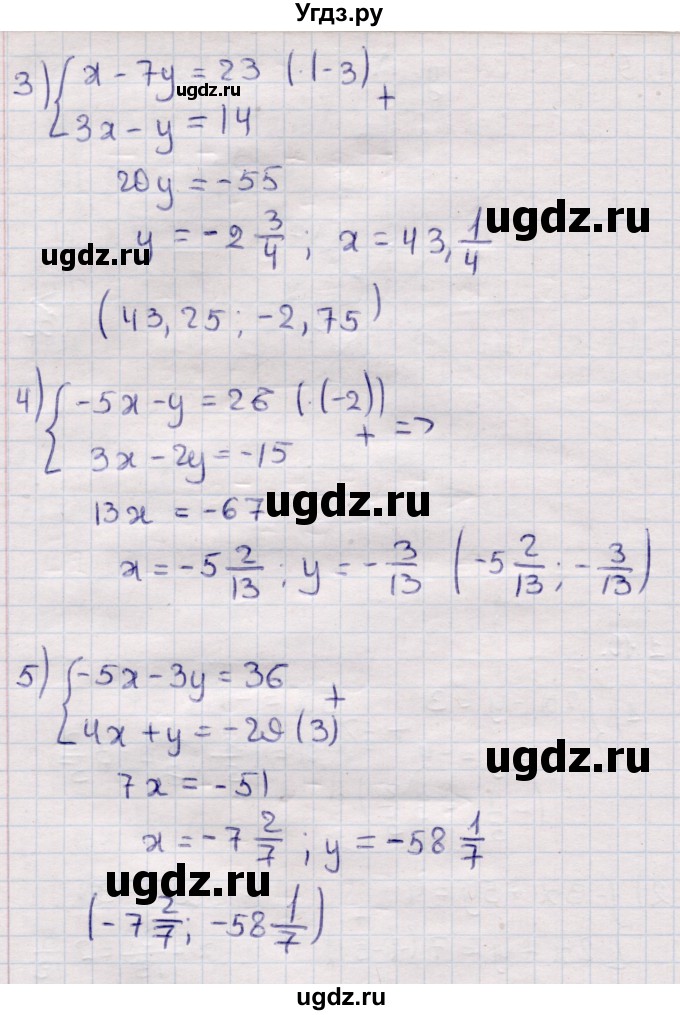 Угдз.ру
3) { x - 7y = 23 (·(-3)
ugdz.ru
3x - y = 14 +
20y = -55
y = -2 3/4 ; x = 43, 1/4
ugdz.ru
ugdz.ru
(43,25 ; -2,75)
4) { -5x - y = 26 (·(-2))
3x - 2y = -15 + =>
13x = -67
ugdz.ru
x = -5 2/13 ; y = - 3/13 (-5 2/13 ; - 3/13)
5) { -5x - 3y = 36
4x + y = -29 (3) +
ugdz.ru
7x = -51
x = -7 2/7 ; y = -58 1/7
ugdz.ru
(-7 2/7 ; -58 1/7)
ugdz.ru